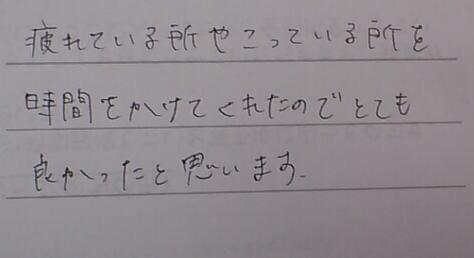 疲れている所やこっている所を
時間をかけてくれたのでとても
良かったと思います.